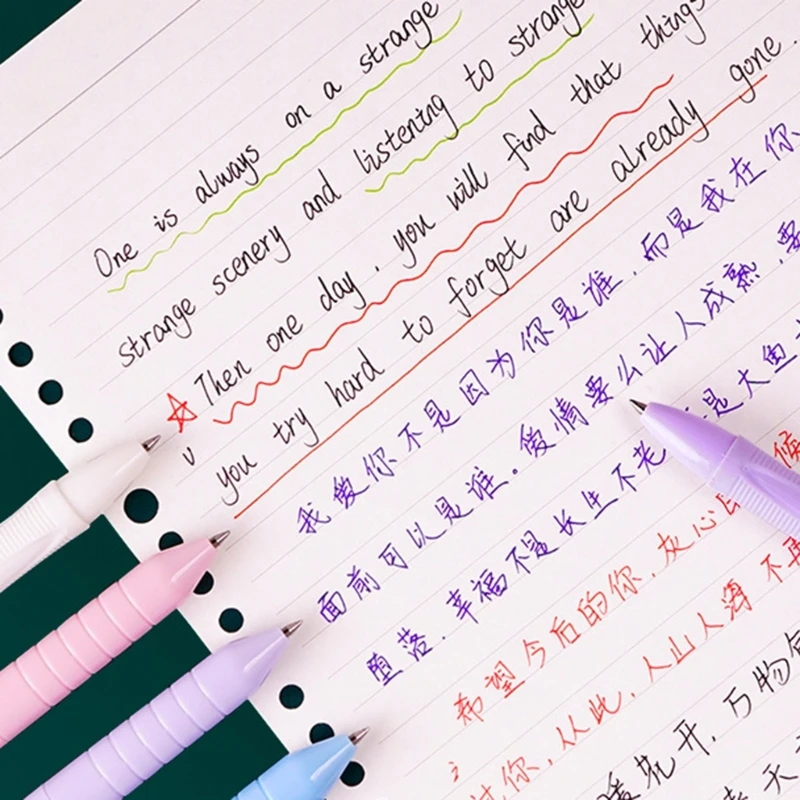 One is always on a strange
strange scenery and listening to strange
Then one day, you will find that things
you try hard to forget are already gone.
我爱你不是因为你是谁,而是我在你
面前可以是谁。爱情要么让人成熟,要
堕落,幸福不是长生不老 是大鱼
希望今后的你,灰心
你,从此,人山人海 不再
暖花开,万物
天